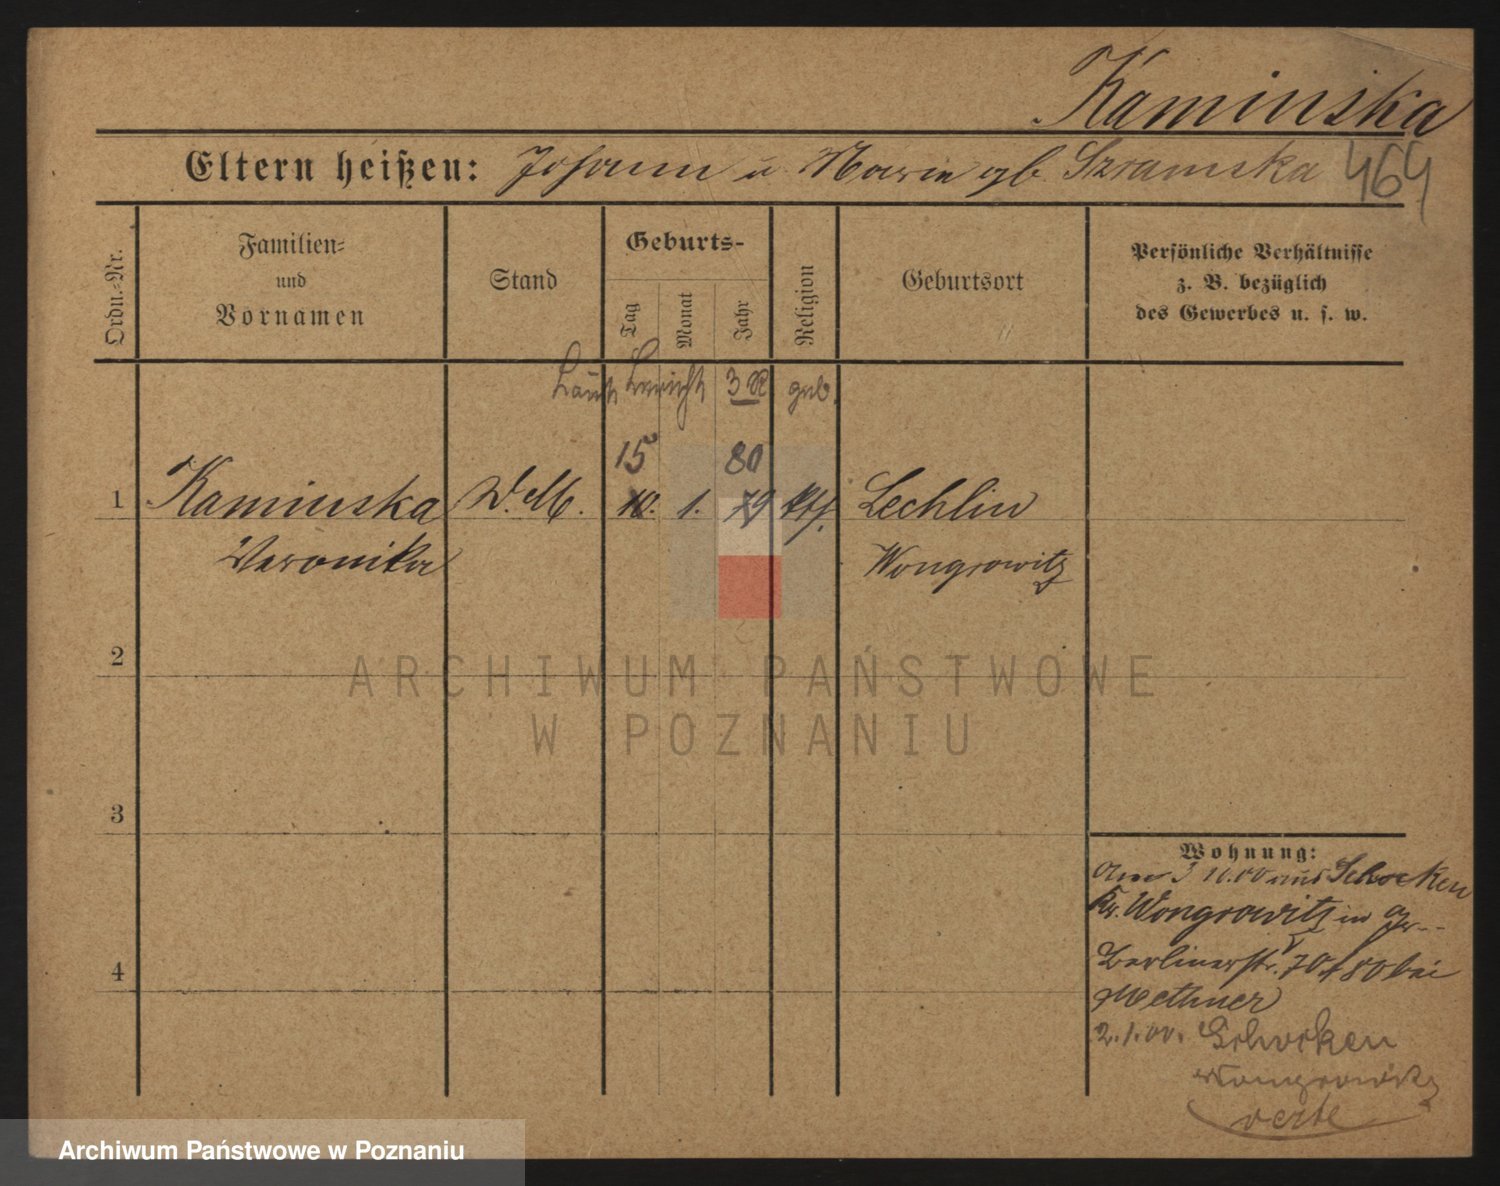 Kaminska
Eltern heißen: Johann u Marie gb. Szramska 464
Ordn.-Nr.
Familien-
und
Vornamen
Stand
Geburts-
Tag
Monat
Jahr
Religion
Geburtsort
Persönliche Verhältnisse
z. B. bezüglich
des Gewerbes u. s. w.
Laut Bericht 3 R geb.
15 80
1 Kaminska D. M. 10. 1. 79 kth. Lechlin
Veronika Wongrowitz
2
3
4
Wohnung:
aus Schocken
Kr. Wongrowitz in Gr.
Berlinerstr. 79/80 bei
Methner
2.1.00. Schocken
Wongrowitz
verte
ARCHIWUM PAŃSTWOWE
W POZNANIU
Archiwum Państwowe w Poznaniu